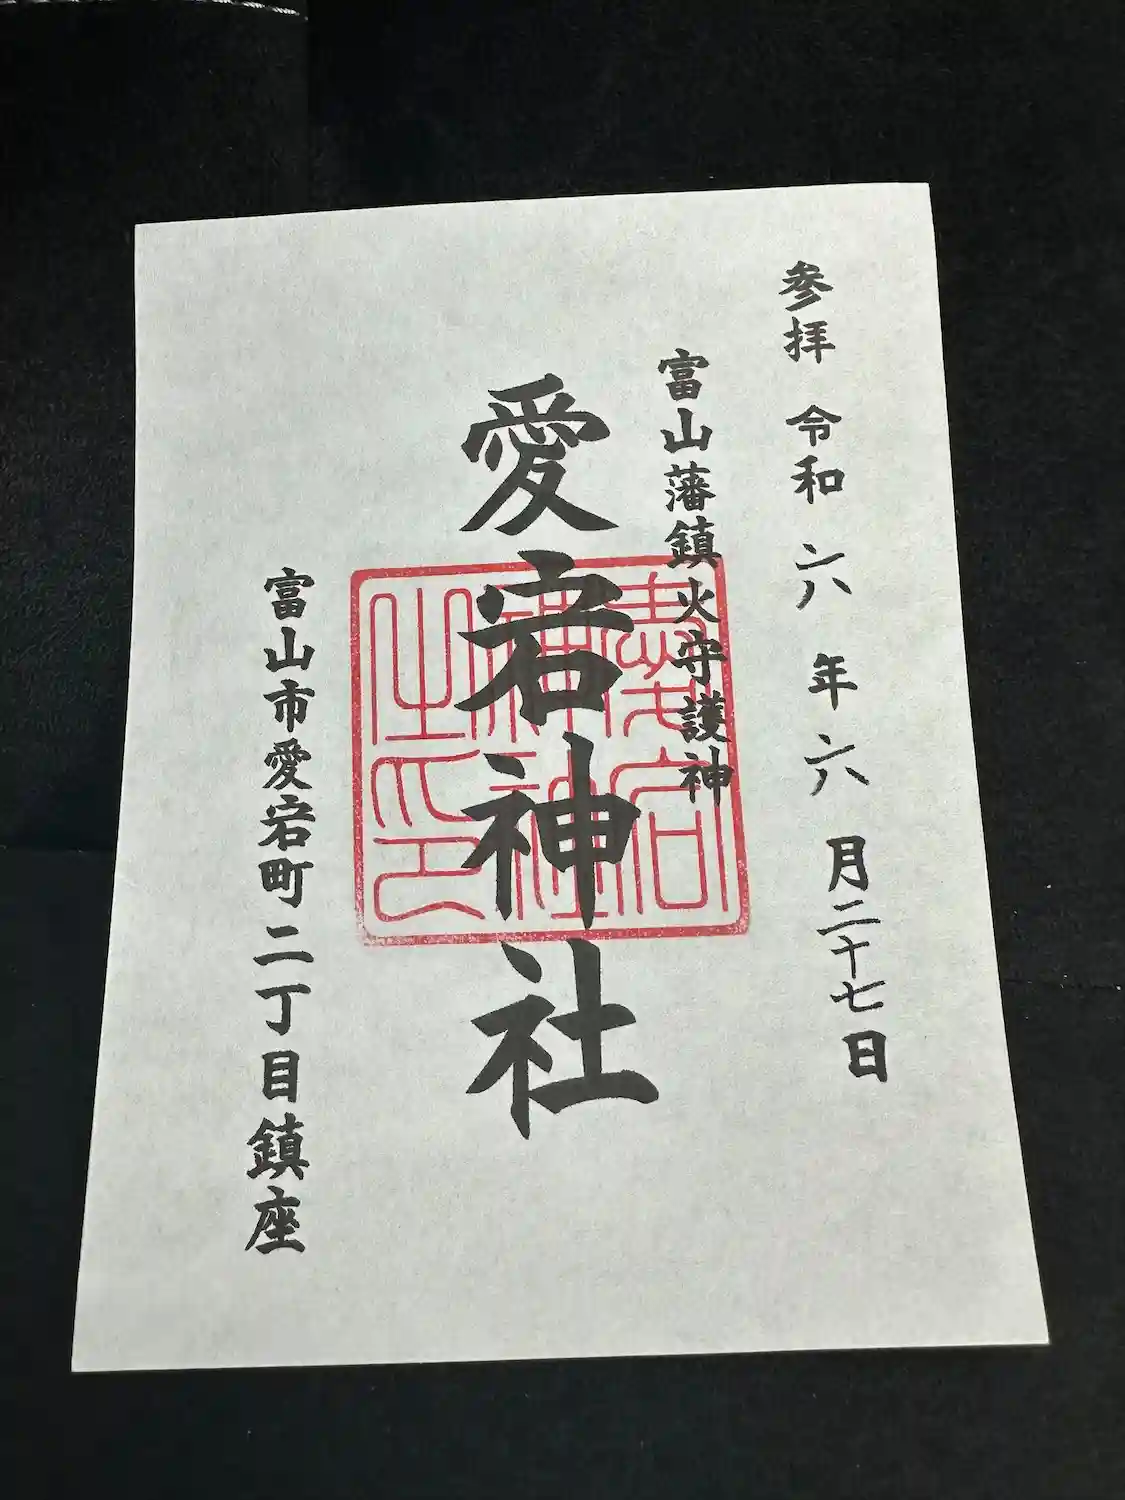 参拝 令和 六 年 六 月二十七日
富山藩鎮火守護神
愛宕神社
富山市愛宕町二丁目鎮座
愛宕
神社
之印